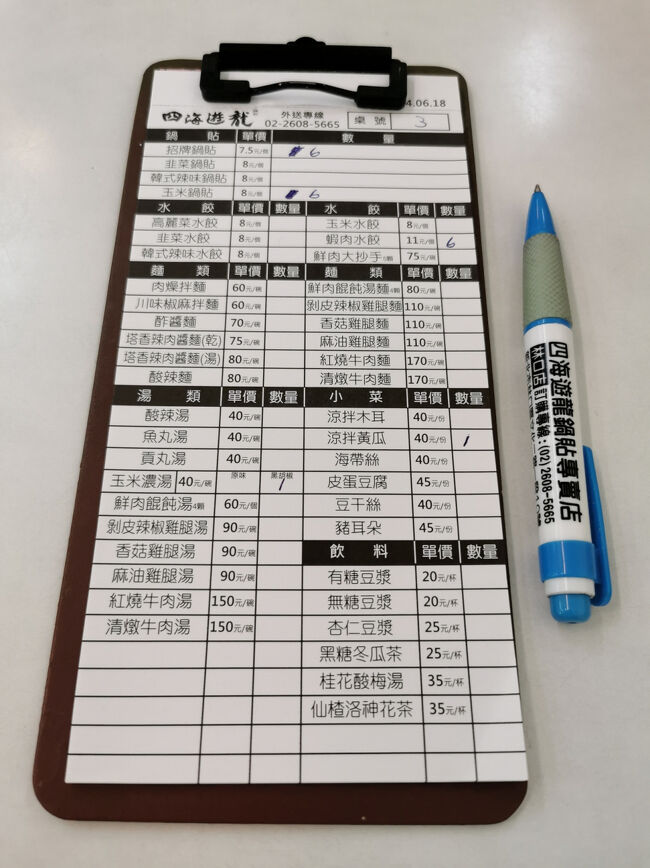 4.06.18
四海遊龍 外送專線 02-2608-5665 桌號 3
鍋貼 單價 數量
招牌鍋貼 7.5元/個 6
韭菜鍋貼 8元/個
韓式辣味鍋貼 8元/個
玉米鍋貼 8元/個 6
水餃 單價 數量 水餃 單價 數量
高麗菜水餃 8元/個 玉米水餃 8元/個
韭菜水餃 8元/個 蝦肉水餃 11元/個 6
韓式辣味水餃 8元/個 鮮肉大抄手 75元/碗
麵類 單價 數量 麵類 單價 數量
肉燥拌麵 60元/碗 鮮肉餛飩湯麵4顆 80元/碗
川味椒麻拌麵 60元/碗 剝皮辣椒雞腿麵 110元/碗
酢醬麵 70元/碗 香菇雞腿麵 110元/碗
塔香辣肉醬麵(乾) 75元/碗 麻油雞腿麵 110元/碗
塔香辣肉醬麵(湯) 80元/碗 紅燒牛肉麵 170元/碗
酸辣麵 80元/碗 清燉牛肉麵 170元/碗
湯類 單價 數量 小菜 單價 數量
酸辣湯 40元/碗 涼拌木耳 40元/份
魚丸湯 40元/碗 涼拌黃瓜 40元/份 1
貢丸湯 40元/碗 海帶絲 40元/份
玉米濃湯 40元/碗 原味 黑胡椒 1 皮蛋豆腐 45元/份
鮮肉餛飩湯4顆 60元/個 豆干絲 40元/份
剝皮辣椒雞腿湯 90元/碗 豬耳朵 45元/份
香菇雞腿湯 90元/碗 飲料 單價 數量
麻油雞腿湯 90元/碗 有糖豆漿 20元/杯
紅燒牛肉湯 150元/碗 無糖豆漿 20元/杯
清燉牛肉湯 150元/碗 杏仁豆漿 25元/杯
黑糖冬瓜茶 25元/杯
桂花酸梅湯 35元/杯
仙楂洛神花茶 35元/杯
四海遊龍鍋貼專賣店
林口店 訂購專線:(02)2608-5665